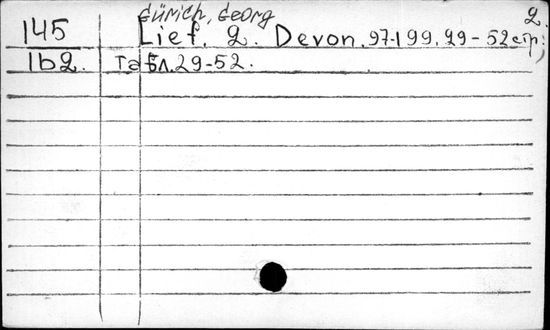 Gürich, Georg
2.
145 Lief. 2. Devon. 97-199, 29-52 стр;
1b2. Табл. 29-52.